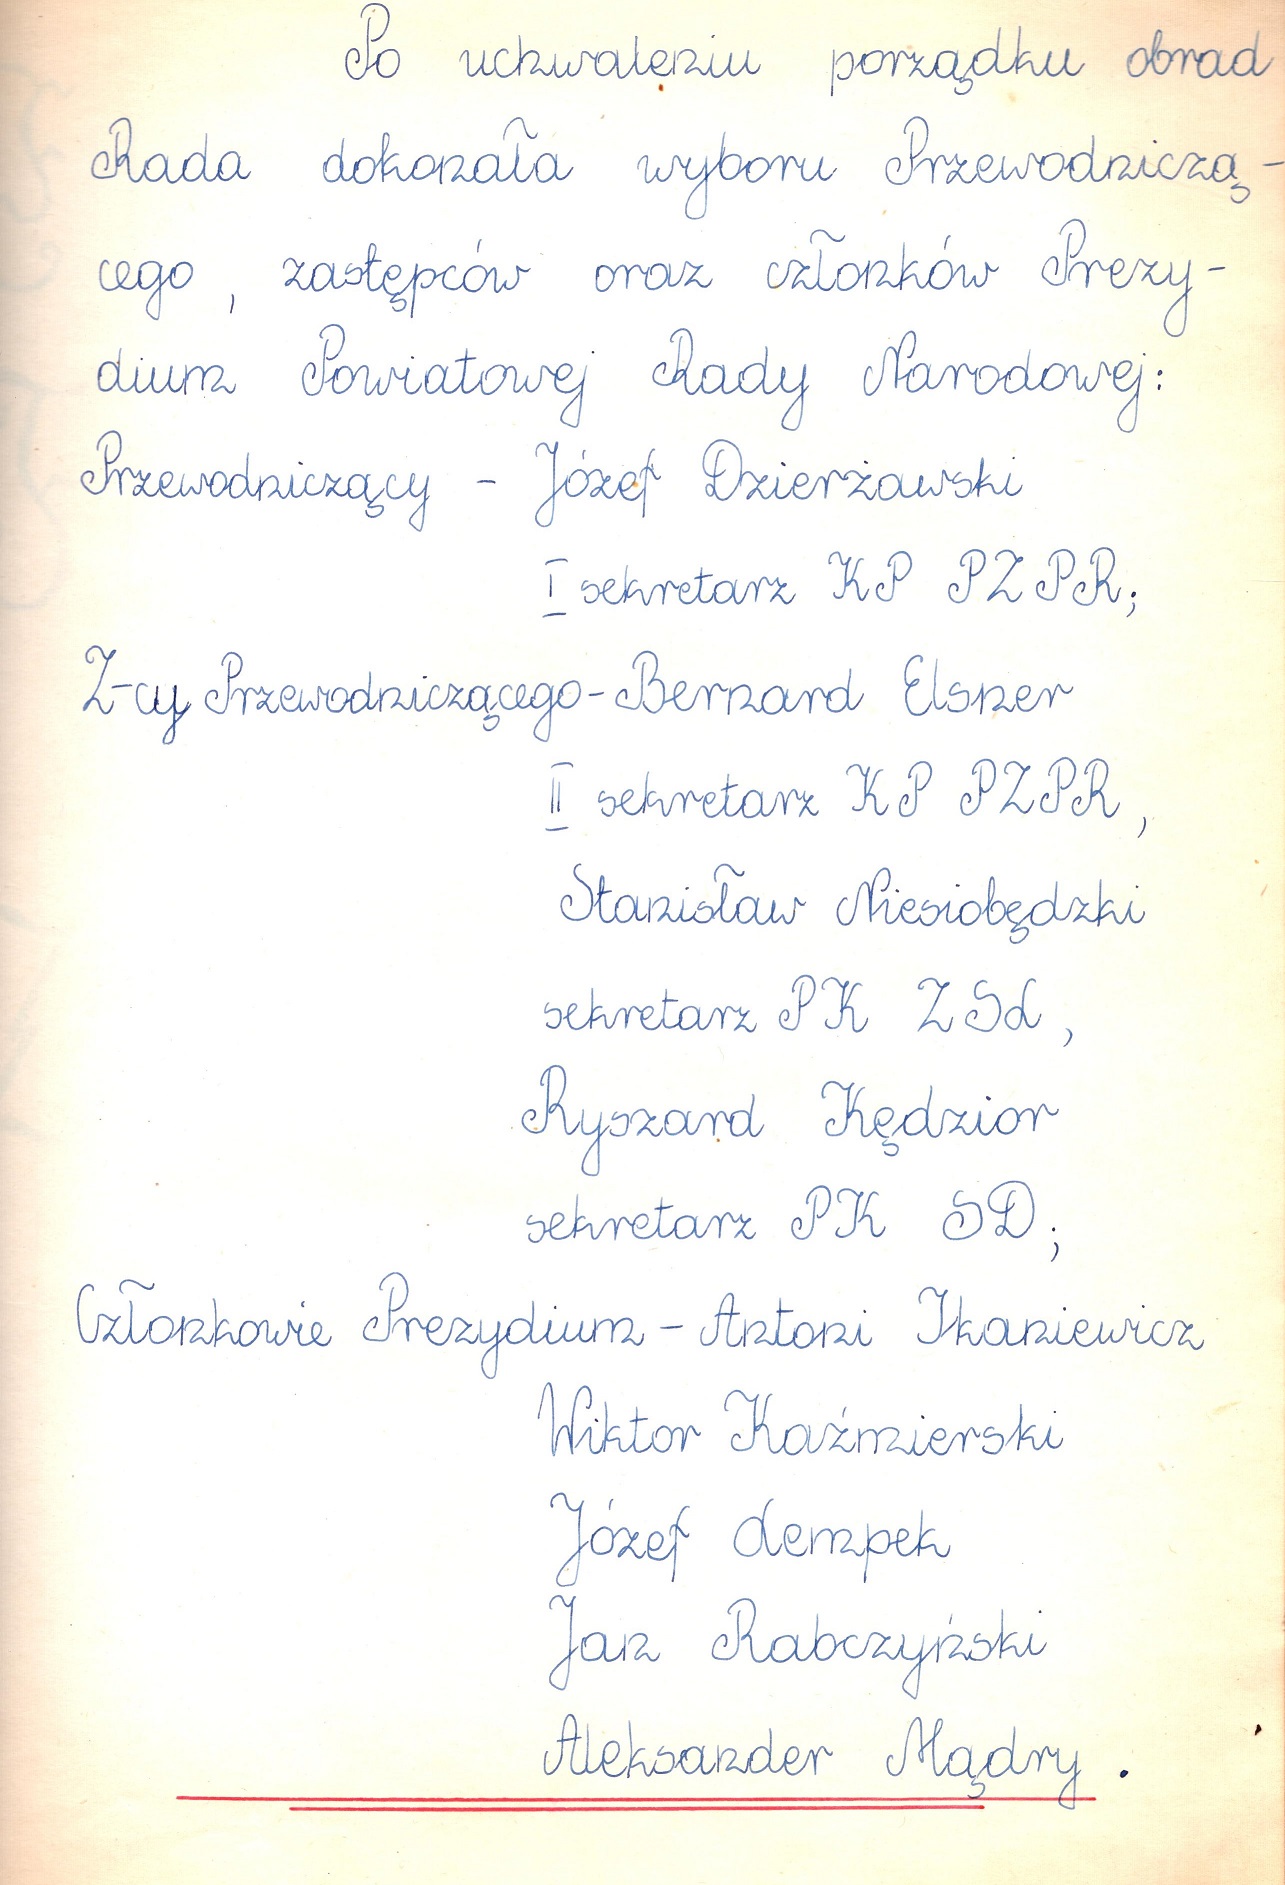 Po uchwaleniu porządku obrad
Rada dokonała wyboru Przewodniczą-
cego, zastępców oraz członków Prezy-
dium Powiatowej Rady Narodowej:
Przewodniczący - Józef Dzierżawski
I sekretarz KP PZPR;
Z-cy Przewodniczącego - Bernard Elsner
II sekretarz KP PZPR,
Stanisław Niesiobędzki
sekretarz PK ZSL,
Ryszard Kędzior
sekretarz PK SD;
Członkowie Prezydium - Antoni Ikaniewicz
Wiktor Kaźmierski
Józef Lempek
Jan Rabczyński
Aleksander Mądry.